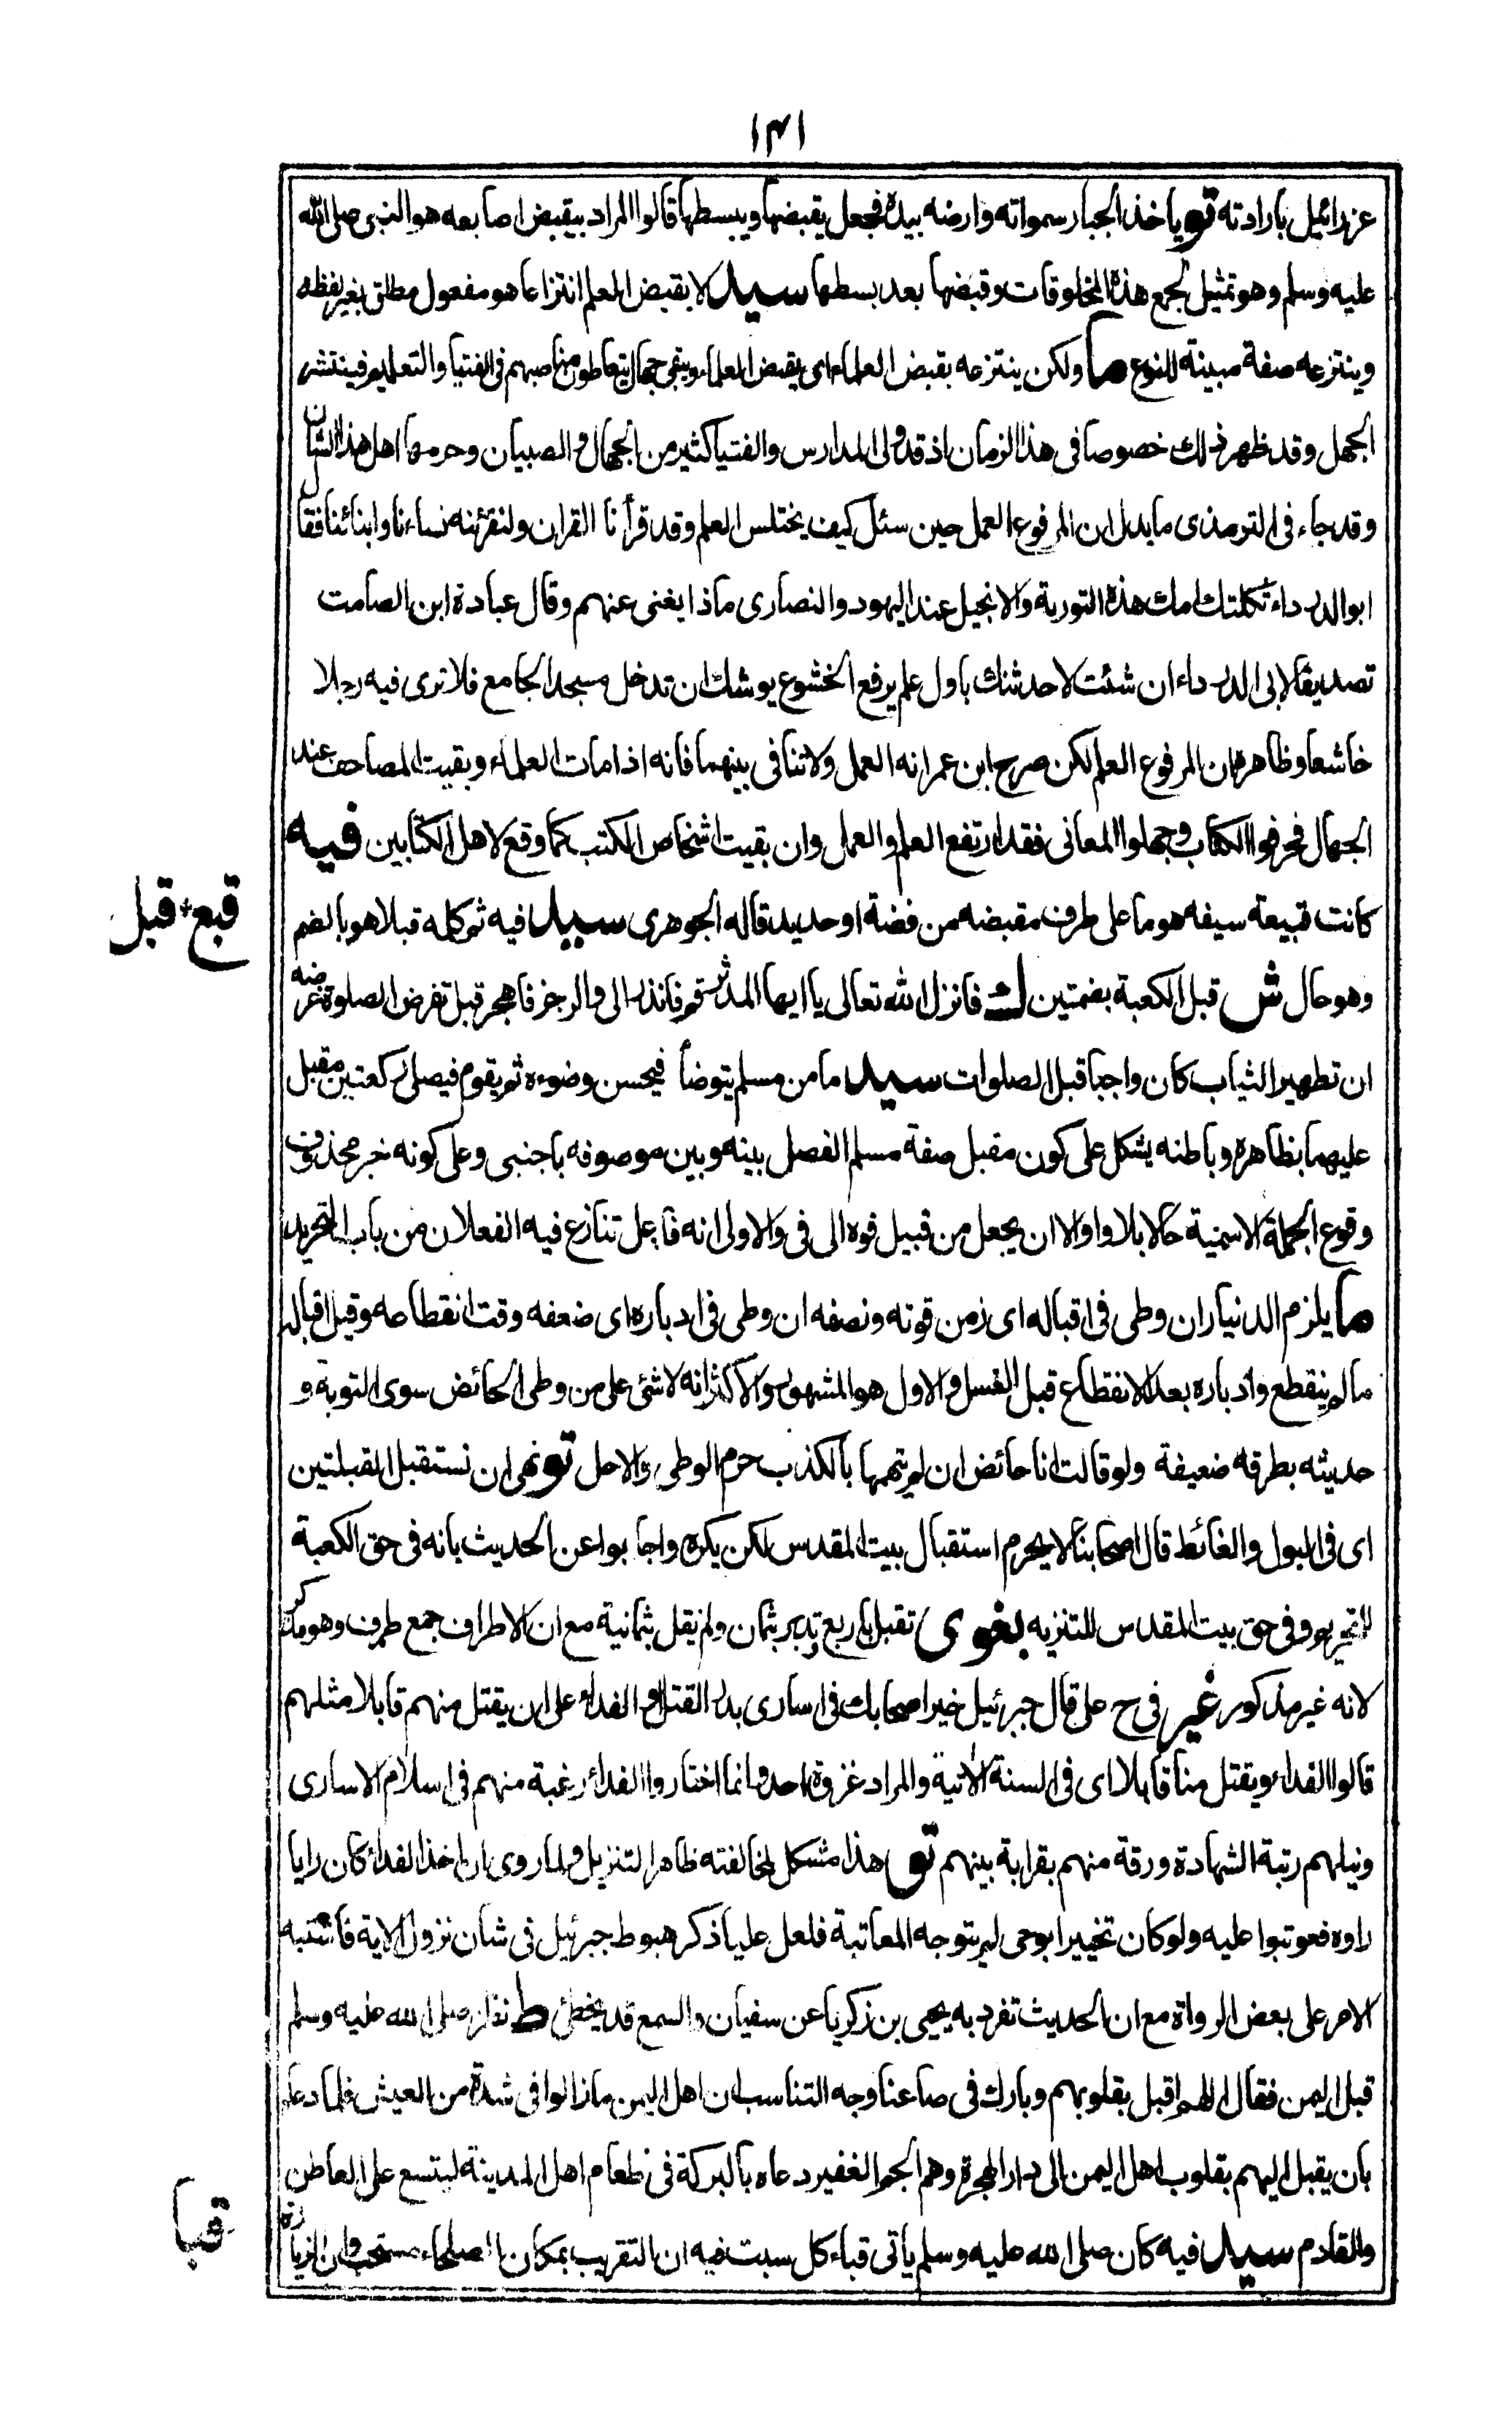 ١٣١
عزرائيل بارادته تو ياخذ الجبار سمواته وارضه بيده فجعل يقبضها ويبسطها قالوا المراد بيقبض اصابعه هو النبى صلى الله
عليه وسلم وهو تمثيل لجمع هذه المخلوقات وقبضها بعد بسطها سيد لا يقبض العلم انتزاعا هو مفعول مطلق بغير لفظه
وينتزعه صفة مبينة للنوع ما ولكن ينتزعه بقبض العلماء اى يقبض العلماء ويبقى جهال يتعاطون مناصبهم فى الفتيا والتعليم فينتشر
الجهل وقد ظهر ذلك خصوصا فى هذا الزمان اذ قد ولى المدارس والفتيا كثير من الجهال والصبيان وحرمها اهل هذا الشان
وقد جاء فى الترمذى ما يدل ان المرفوع العمل حين سئل كيف يختلس العلم وقد قرأنا القران ولنقرئنه نساءنا وابنائنا فقال
ابو الدرداء ثكلتك امك هذه التورية والانجيل عند اليهود والنصارى ماذا يغنى عنهم وقال عبادة ابن الصامت
تصديقا لابى الدرداء ان شئت لاحدثنك باول علم يرفع الخشوع يوشك ان تدخل مسجد الجامع فلا ترى فيه رجلا
خاشعا وظاهره ان المرفوع العلم لكن صرح ابن عمر انه العمل ولا تنافى بينهما فانه اذا مات العلماء وبقيت المصاحف عند
الجهال فحرفوا الكتاب وجهلوا المعانى فقد ارتفع العلم والعمل وان بقيت اشخاص الكتب كما وقع لاهل الكتابين فيه
قبع + قبل
كانت قبيعة سيفه هو ما على طرف مقبضه من فضة او حديد قاله الجوهرى سيد فيه ثم كلمه قبلا هو بالضم
وهو حال ش قبل الكعبة بضمتين ك فانزل الله تعالى يا ايها المدثر قم فانذر الى والرجز فاهجر قبل تفرض الصلوة غرضه
ان تطهير الثياب كان واجبا قبل الصلوات سيد ما من مسلم يتوضأ فيحسن وضوءه ثم يقوم فيصلى ركعتين مقبل
عليهما بظاهره وباطنه يشكل على كون مقبل صفة مسلم الفصل بينه وبين موصوفه باجنبى وعلى كونه خبر محذوف
وقوع الجملة الاسمية حالا بلا واو الا ان يجعل من قبيل فوه الى فى والاولى انه فاعل تنازع فيه الفعلان من باب التجريد
ما يلزم الديناران وطى فى اقباله اى زمن قوته ونصفه ان وطى فى ادباره اى ضعفه وقت انقطاعه وقيل اقباله
ما لم ينقطع وادباره بعد الانقطاع قبل الغسل والاول هو المشهور والاكثر انه لا شئ على من وطى الحائض سوى التوبة و
حديثه بطرقه ضعيفة ولو قالت انا حائض ان لم يتهمها بالكذب حرم الوطى والا حل تو نهى ان نستقبل القبلتين
اى فى البول والغائط قال اصحابنا لا يحرم استقبال بيت المقدس لكن يكره واجابوا عن الحديث بانه فى حق الكعبة
للتحريم وفى حق بيت المقدس للتنزيه بغوى تقبل باربع وتدبر بثمان ولم يقل بثمانية مع ان الاطراف جمع طرف وهو مذكر
لانه غير مذكور غير فى ح على قال جبرئيل خير اصحابك فى اسارى بدر القتل او الفداء على ان يقتل منهم قابلا مثلهم
قالوا الفداء ويقتل منا قابلا اى فى السنة الأتية والمراد غزوة احد وانما اختاروا الفداء رغبة منهم فى اسلام الاسارى
ونيلهم رتبة الشهادة ورقة منهم بقرابة بينهم تو هذا مشكل لمخالفته ظاهر التنزيل ولما روى ان اخذ الفداء كان رايا
راوه فعوتبوا عليه ولو كان تخييرا بوحى لم يتوجه المعاتبة فلعل عليا ذكر هبوط جبرئيل فى شان نزول الاية فاشتبه
الامر على بعض الرواة مع ان الحديث تفرد به يحيى بن زكريا عن سفيان والسمع قد يخطئ ط نظر صلى الله عليه وسلم
قبل اليمن فقال اللهم اقبل بقلوبهم وبارك فى صاعنا وجه التناسب ان اهل اليمن ما زالوا فى شدة من العيش فلما دعا
بان يقبل اليهم بقلوب اهل اليمن الى دار الهجرة وهم الجم الغفير دعاه بالبركة فى طعام اهل المدينة ليتسع على القاطن
قبا
والقادم سيد فيه كان صلى الله عليه وسلم ياتى قباء كل سبت فيه ان التقريب بمكان الصلحاء مستحب وان الزيارة